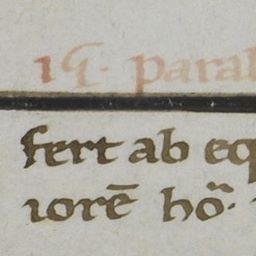 paral
fert ab eq
iorē hō.